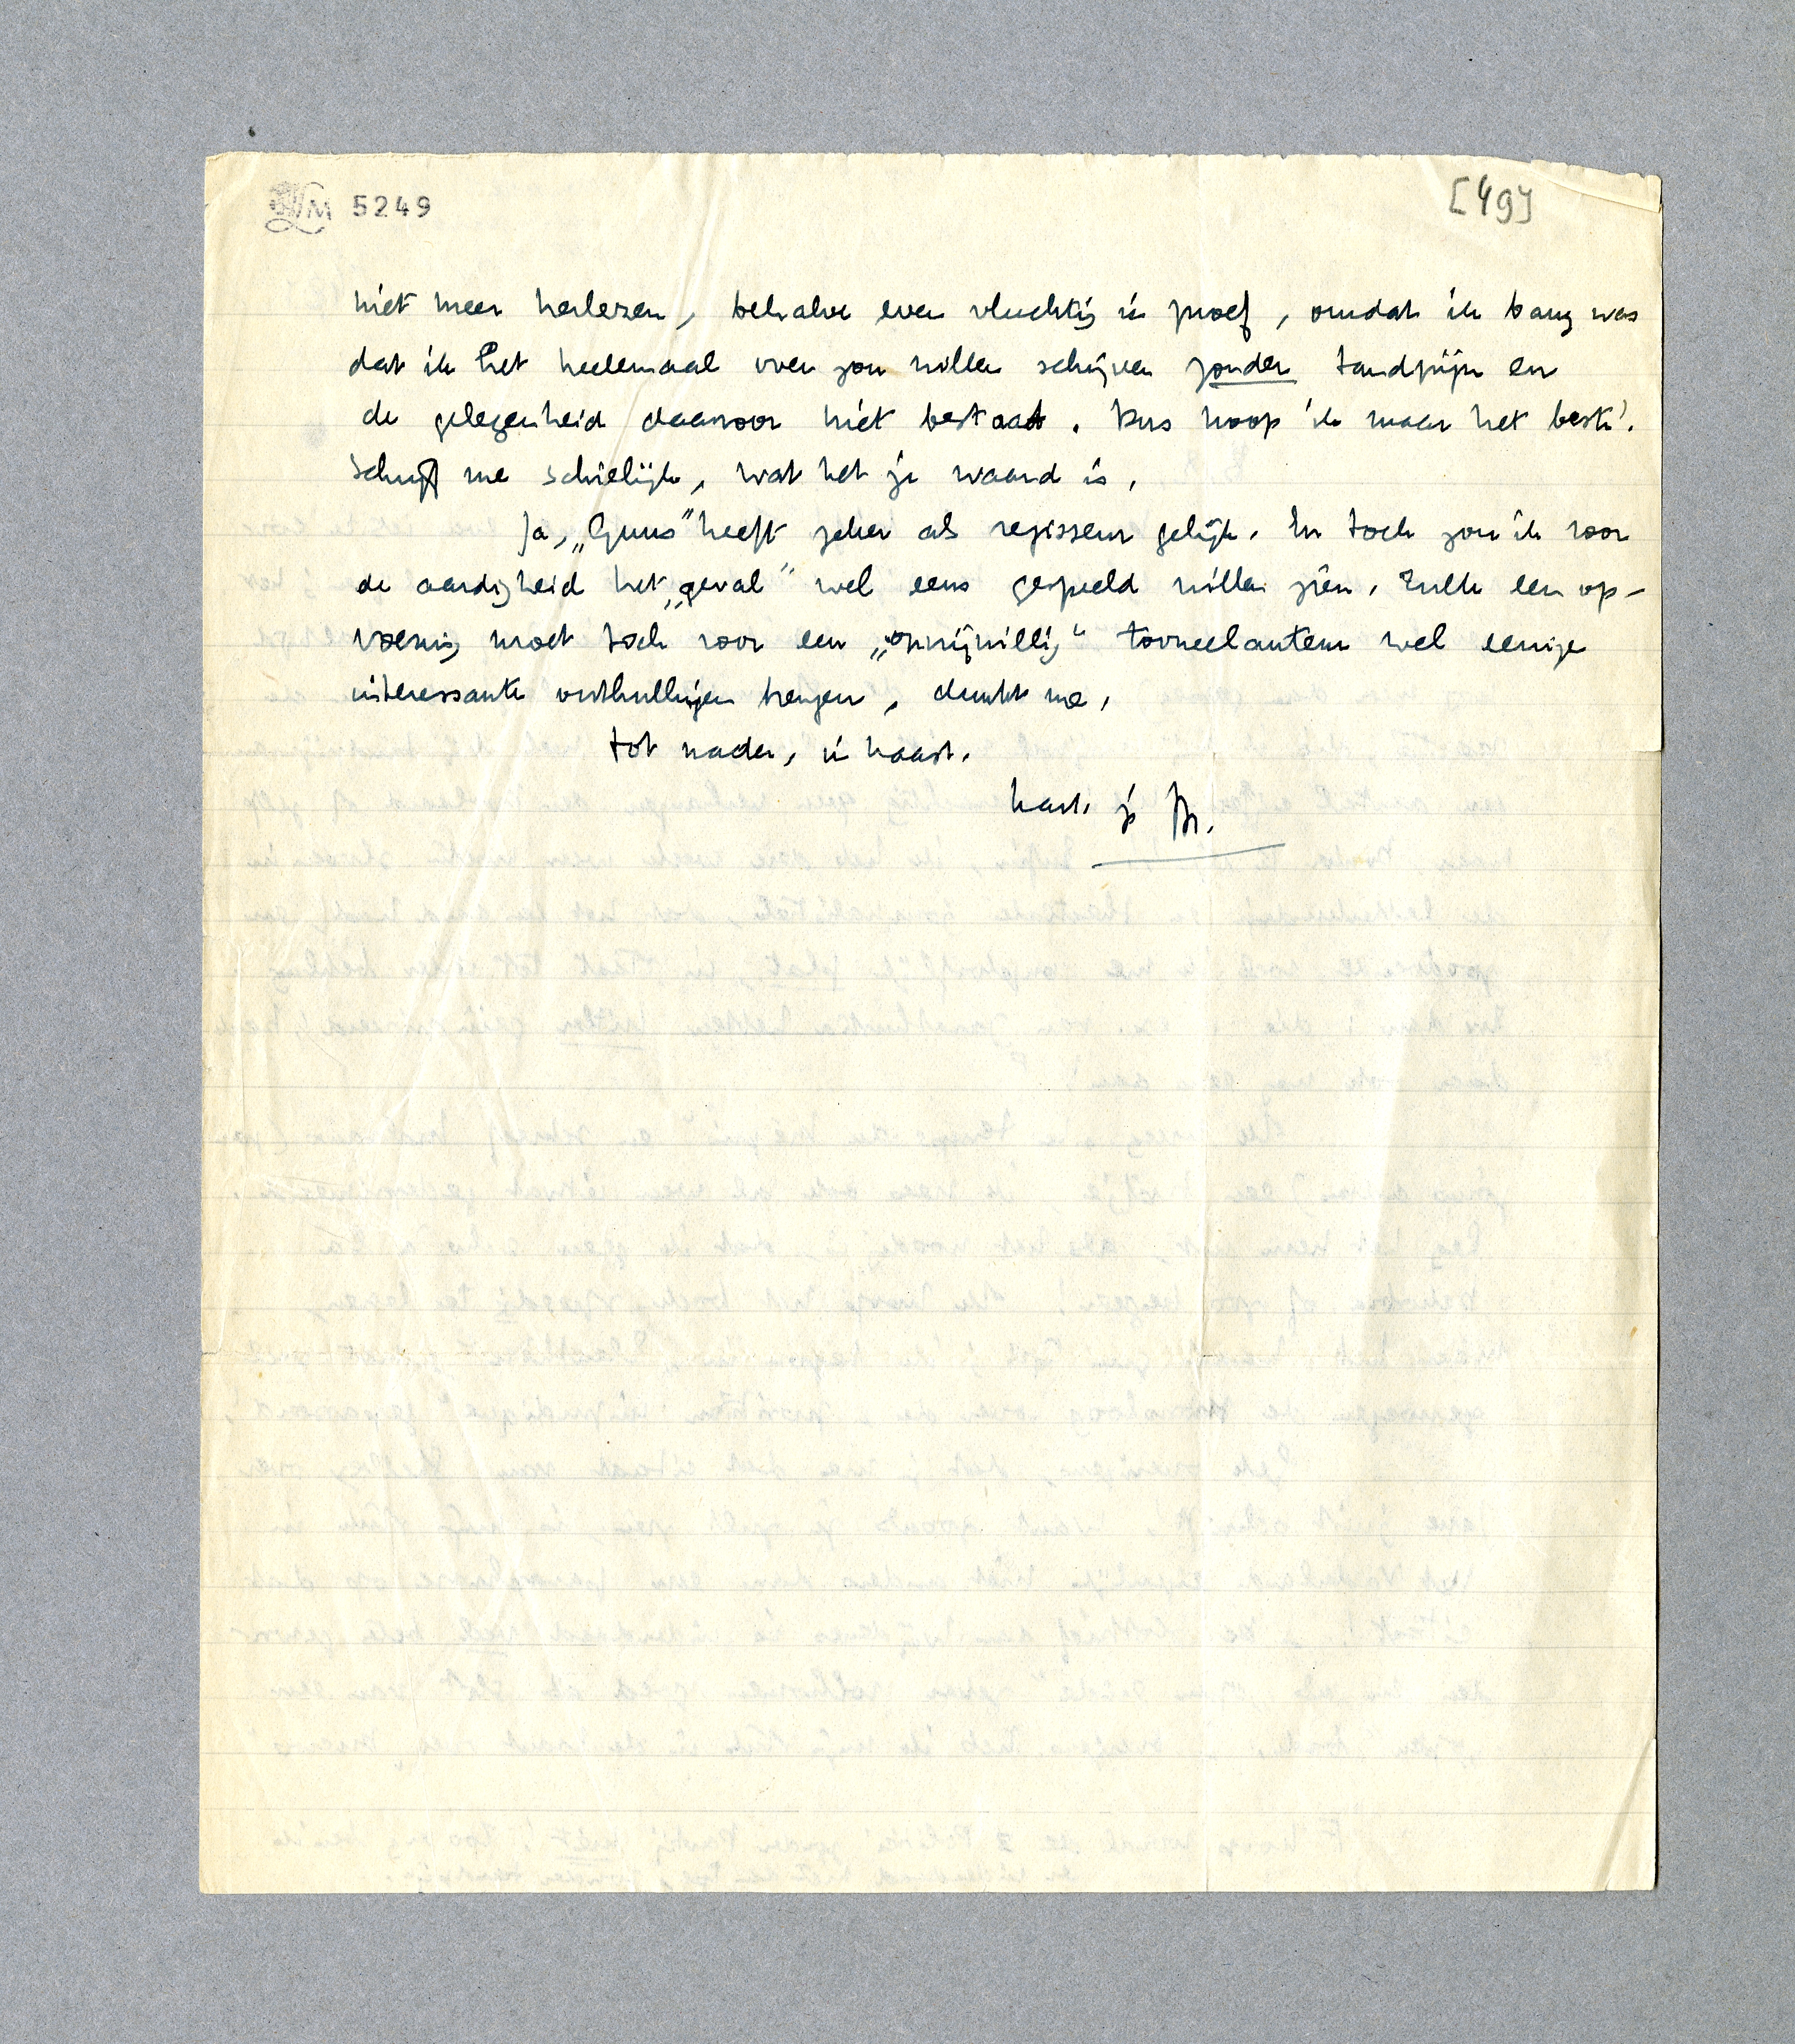 LM 5249
[49]
niet meer herlezen, behalve even vluchtig in proef, omdat ik bang was
dat ik het heelemaal over zou willen schrijven zonder tandpijn en
de gelegenheid daarvoor niet bestaat. Dus hoop ik maar het beste!
Schrijf me schielijk, wat het je waard is.
Ja, „Guus” heeft zeker als regisseur gelijk. En toch zou ik voor
de aardigheid het „geval” wel eens gespeeld willen zien. Zulk een op-
voering moet toch voor een „onvrijwillig” tooneelauteur wel eenige
interessante onthullingen brengen, dunkt me.
Tot nader, in haast.
hart. je M.